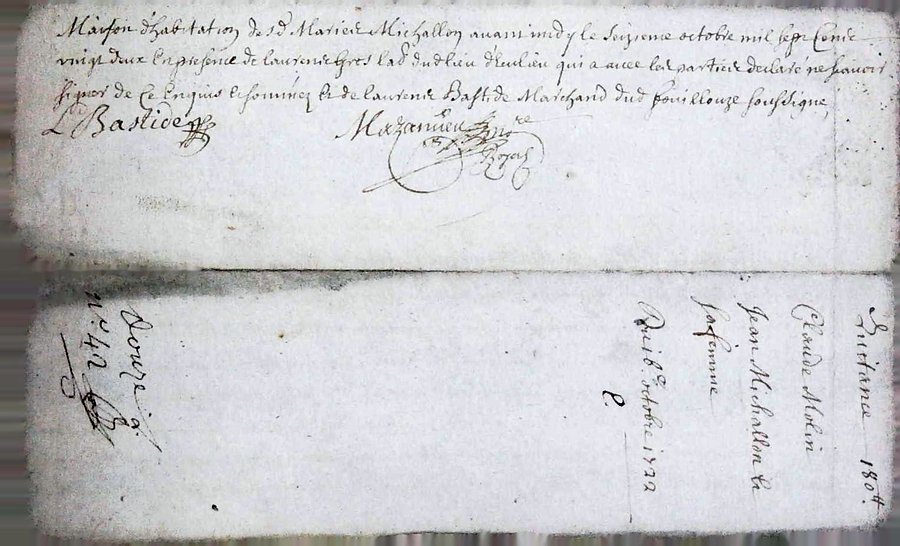 Maison d'habitation de sd Maries Michallon avant midy le seizieme octobre mil sept cents
vingt deux en presence de laurens lab dud lieu d'eulieu qui a avec les parties declaré ne scavoir
signer de ce enquis et sommez et de laurens Bastide Marchand dud fouillouze soussigne
L Bastide
Mazanieu no re
Royal
Quitance 180#
Claude Molin
Jean Michallon et
sa femme
Du 16e octobre 1722
e.
Douze g.
n.º 42